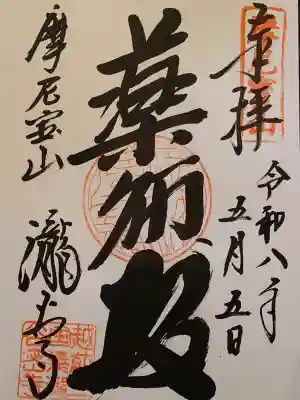 奉拝
令和八年
五月五日
薬師
摩尼宝山
瀧谷寺